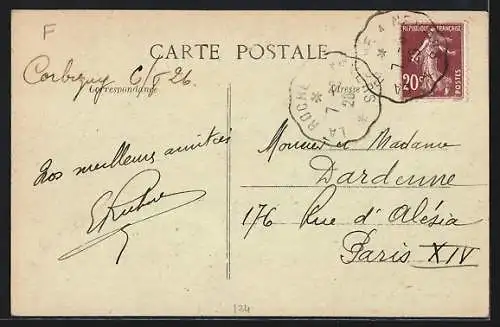 F
CARTE POSTALE
Corbigny 6/8 26
Correspondance
Adresse
RÉPUBLIQUE FRANÇAISE
20c
POSTES
LA ROCHE
7
26
Nos meilleures amitiés
Monsieur et Madame
Dardenne
176 Rue d'Alésia
Paris XIV
124